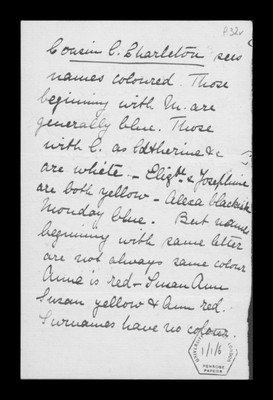 P32v
Cousin C. Charleton sees
names coloured. Those
beginning with M. are
generally blue. Those
with C. as Catherine &c
are white. - Elizth & Josephine
are both yellow - Alexa blackish
Monday blue. But names
beginning with same letter
are not always same colour
Anna is red - Susan Ann
Susan yellow & Ann red.
Surnames have no colour.
1/1/6
PENROSE
PAPERS